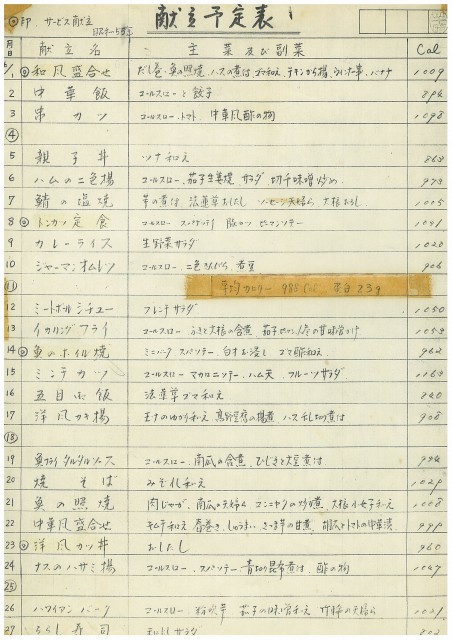 ◎印.サービス献立
献立予定表
月日 献立名 主菜及び副菜 Cal
6/1 ◎和風盛合せ だし巻.魚の照焼.ハスの煮付.ゴマ和え.チキンから揚. バナナ 1009
2 中華飯 コールスローと餃子 894
3 串カツ コールスロー.トマト.中華風酢の物 1098
④
5 親子丼 ツナ和え 863
6 ハムの二色揚 コールスロー.茄子生姜焼.サラダ.切干味噌炒め 973
7 鯖の塩焼 芋の煮付 法蓮草おひたし ソーセージ天ぷら 大根おろし 1005
8 ◎トンカツ定食 コールスロー スパゲッティ 豚カツ ピーマンソテー 1091
9 カレーライス 生野菜サラダ 1020
10 ジャーマンオムレツ コールスロー.二色きんぴら 煮豆 906
⑪ 平均カロリー 988Cal 平白 23g
12 ミートボールシチュー フレンチサラダ 1050
13 イカリングフライ コールスロー ふきと大根の含煮 1053
14 ◎魚のホイル焼 ミニバーク スパソテー.白才お浸し ゴマ酢和え 962
15 ミンチカツ コールスロー マカロニソテー.ハム天.フルーツサラダ 1163
16 五目御飯 法蓮草ゴマ和え 840
17 洋風カキ揚 玉ナのゆかり和え 高野豆腐の揚煮 ハス干し切煮付 908
⑱
19 魚フライタルタルソース コールスロー.南瓜の含煮.ひじきと大豆煮付 994
20 焼そば みそ化和え 1029
21 魚の照焼 肉じゃが.南瓜の天ぷら コンニャクの炒煮.大根小女子和え 1008
22 中華風盛合せ モヤシ和え 春巻き.しゅうまい.さつま芋の甘煮.胡瓜とトマトの中華漬 999
23 ◎洋風カツ丼 おひたし 960
24 ナスのハサミ揚 コールスロー.スパソテー.青切り昆布煮付.酢の物 1047
㉕
26 ハワイアンバーク コールスロー 茄子の味噌和え 天ぷら 1021
27 ちらし寿司